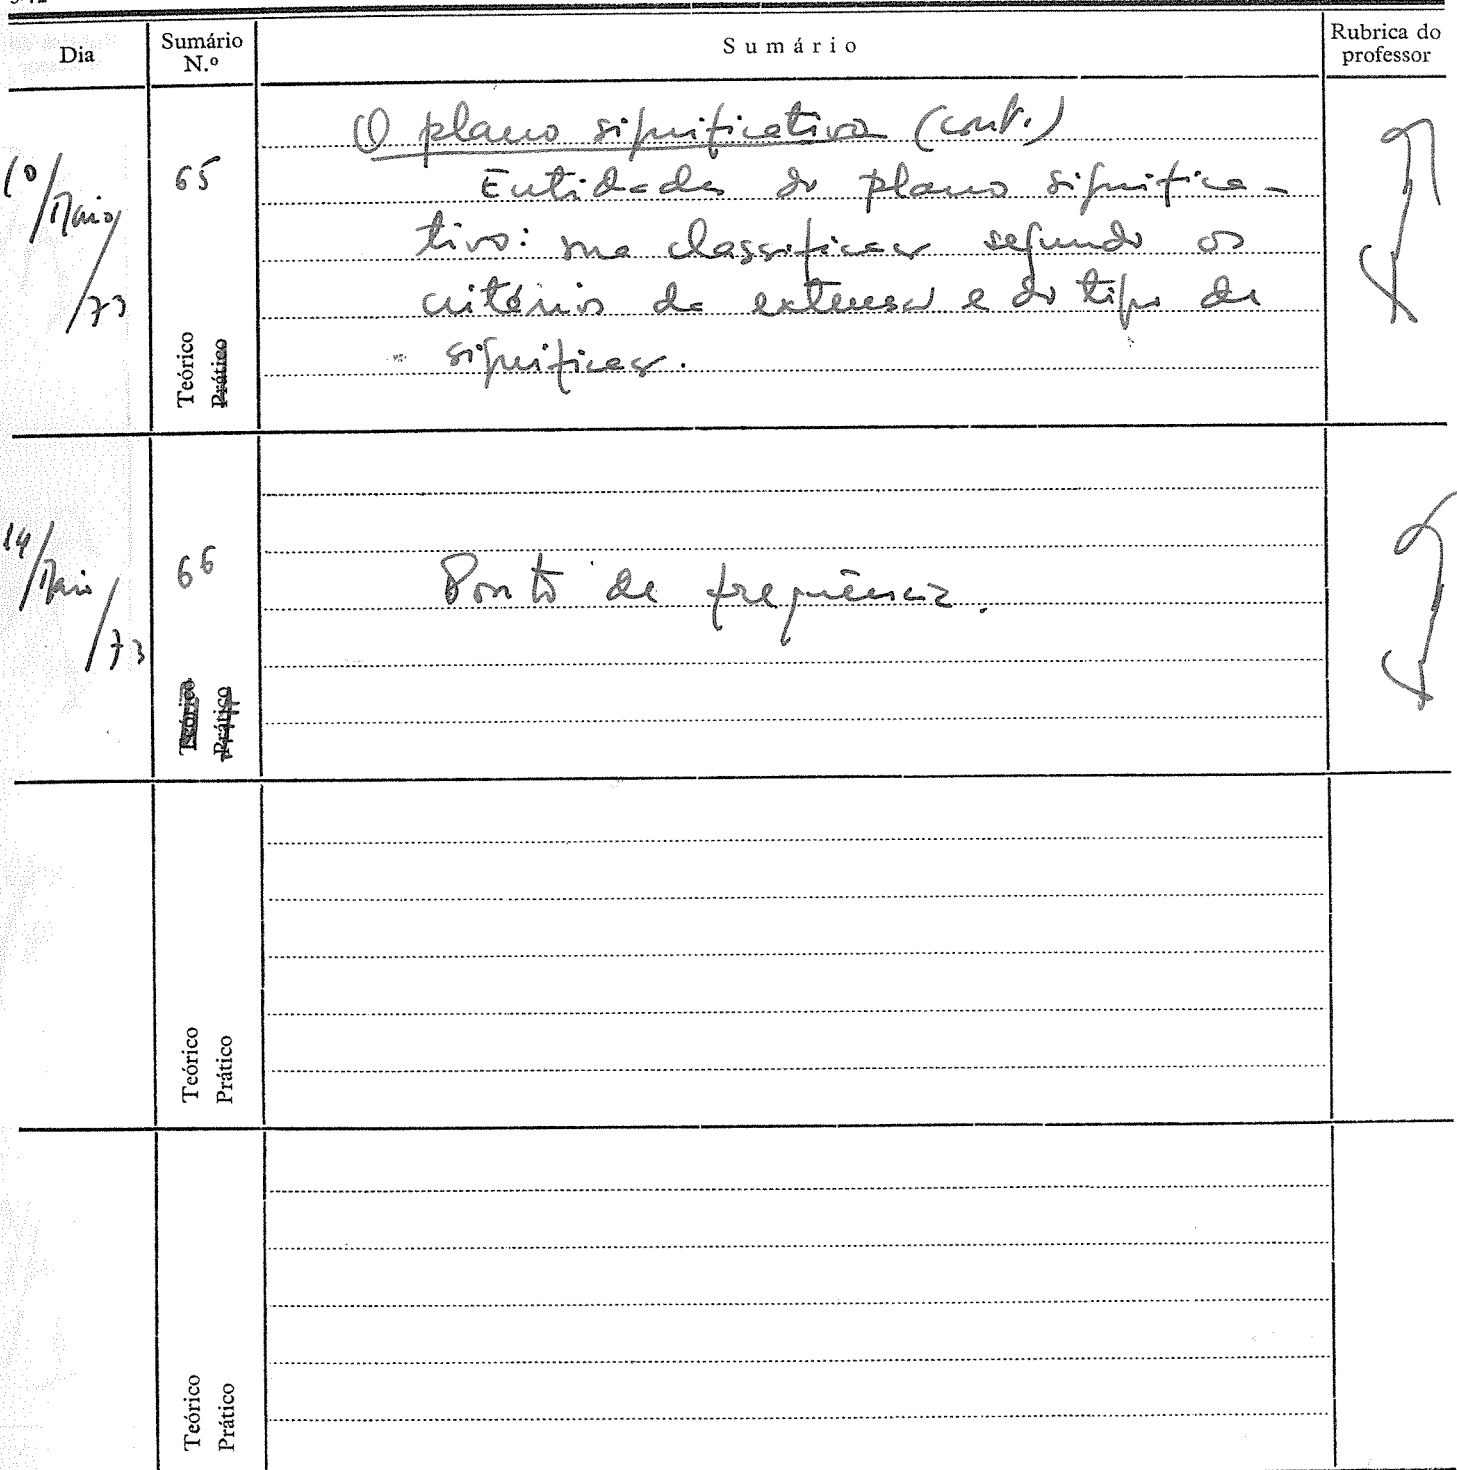 Dia
Sumário
N.º
Sumário
Rubrica do
professor
10/Maio/73
65
Teórico
Prático
O plano significativo (cont.)
Entidades do plano significa-
tivo: sua classificação segundo os
critérios da extensão e do tipo de
significação.
14/Maio/73
66
Teórico
Prático
Ponto de frequência.
Teórico
Prático
Teórico
Prático